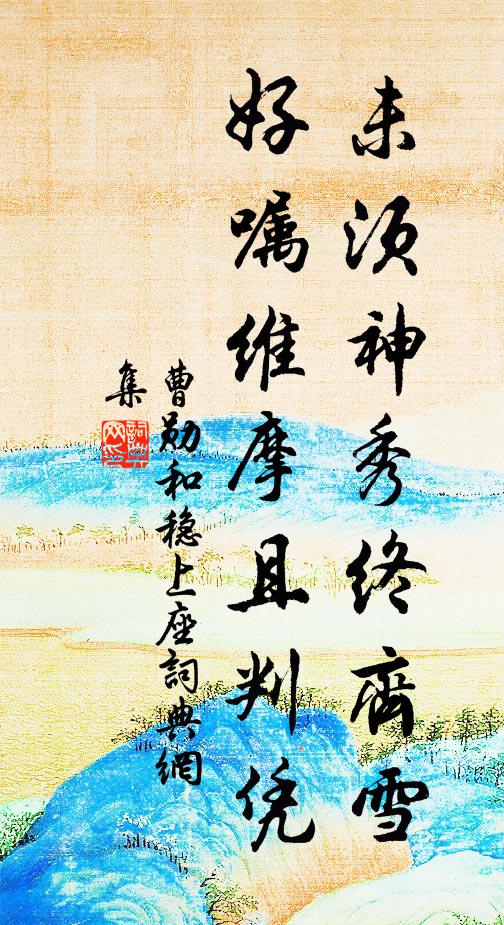 未须神秀终齊雪
好嘱维摩且判凭
曹勋和稳上座詞典網
集